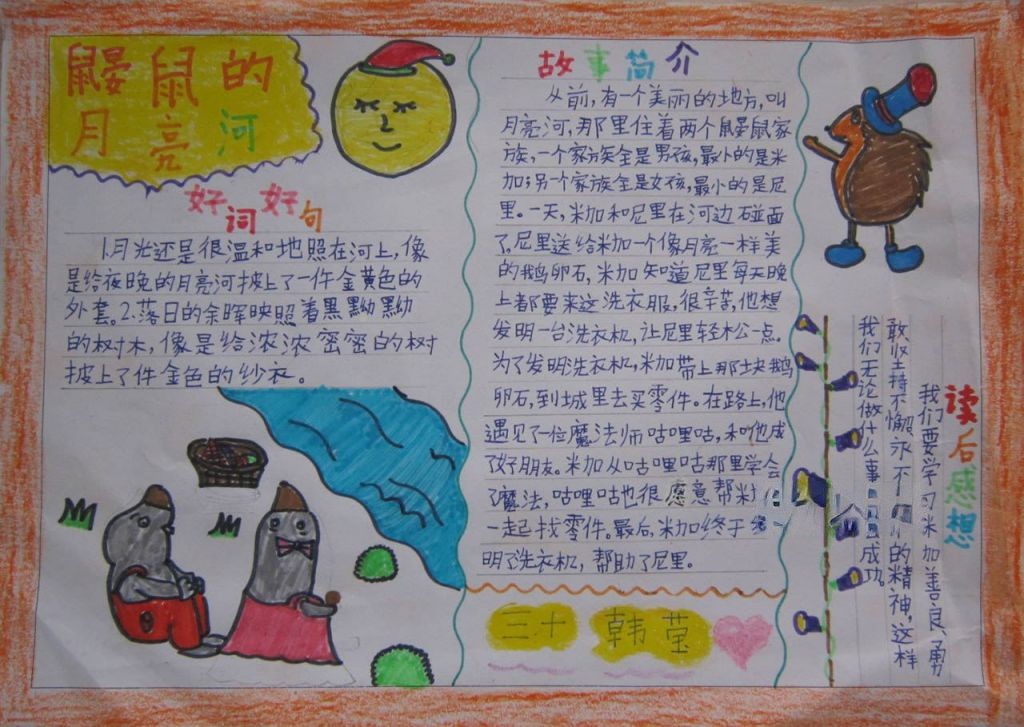 鼹鼠的
月亮河
好词好句
1.月光还是很温和地照在河上,像
是给夜晚的月亮河披上了一件金黄色的
外套。2.落日的余晖映照着黑黝黝
的树木,像是给浓浓密密的树
披上了件金色的纱衣。
故事简介
从前,有一个美丽的地方,叫
月亮河,那里住着两个鼹鼠家
族,一个家族全是男孩,最小的是米
加;另一个家族全是女孩,最小的是尼
里。一天,米加和尼里在河边碰面
了,尼里送给米加一个像月亮一样美
的鹅卵石,米加知道尼里每天晚
上都要来这洗衣服,很辛苦,他想
发明一台洗衣机,让尼里轻松一点。
为了发明洗衣机,米加带上那块鹅
卵石,到城里去买零件。在路上,他
遇见了一位魔法师咕哩咕,和他成
了好朋友。米加从咕哩咕那里学会
了魔法,咕哩咕也很愿意帮米
一起找零件。最后,米加终于
明了洗衣机,帮助了尼里。
三十 韩莹
读后感想
我们要学习米加善良、勇
敢,坚持不懈,永不的精神,这样
我们无论做什么事成功。